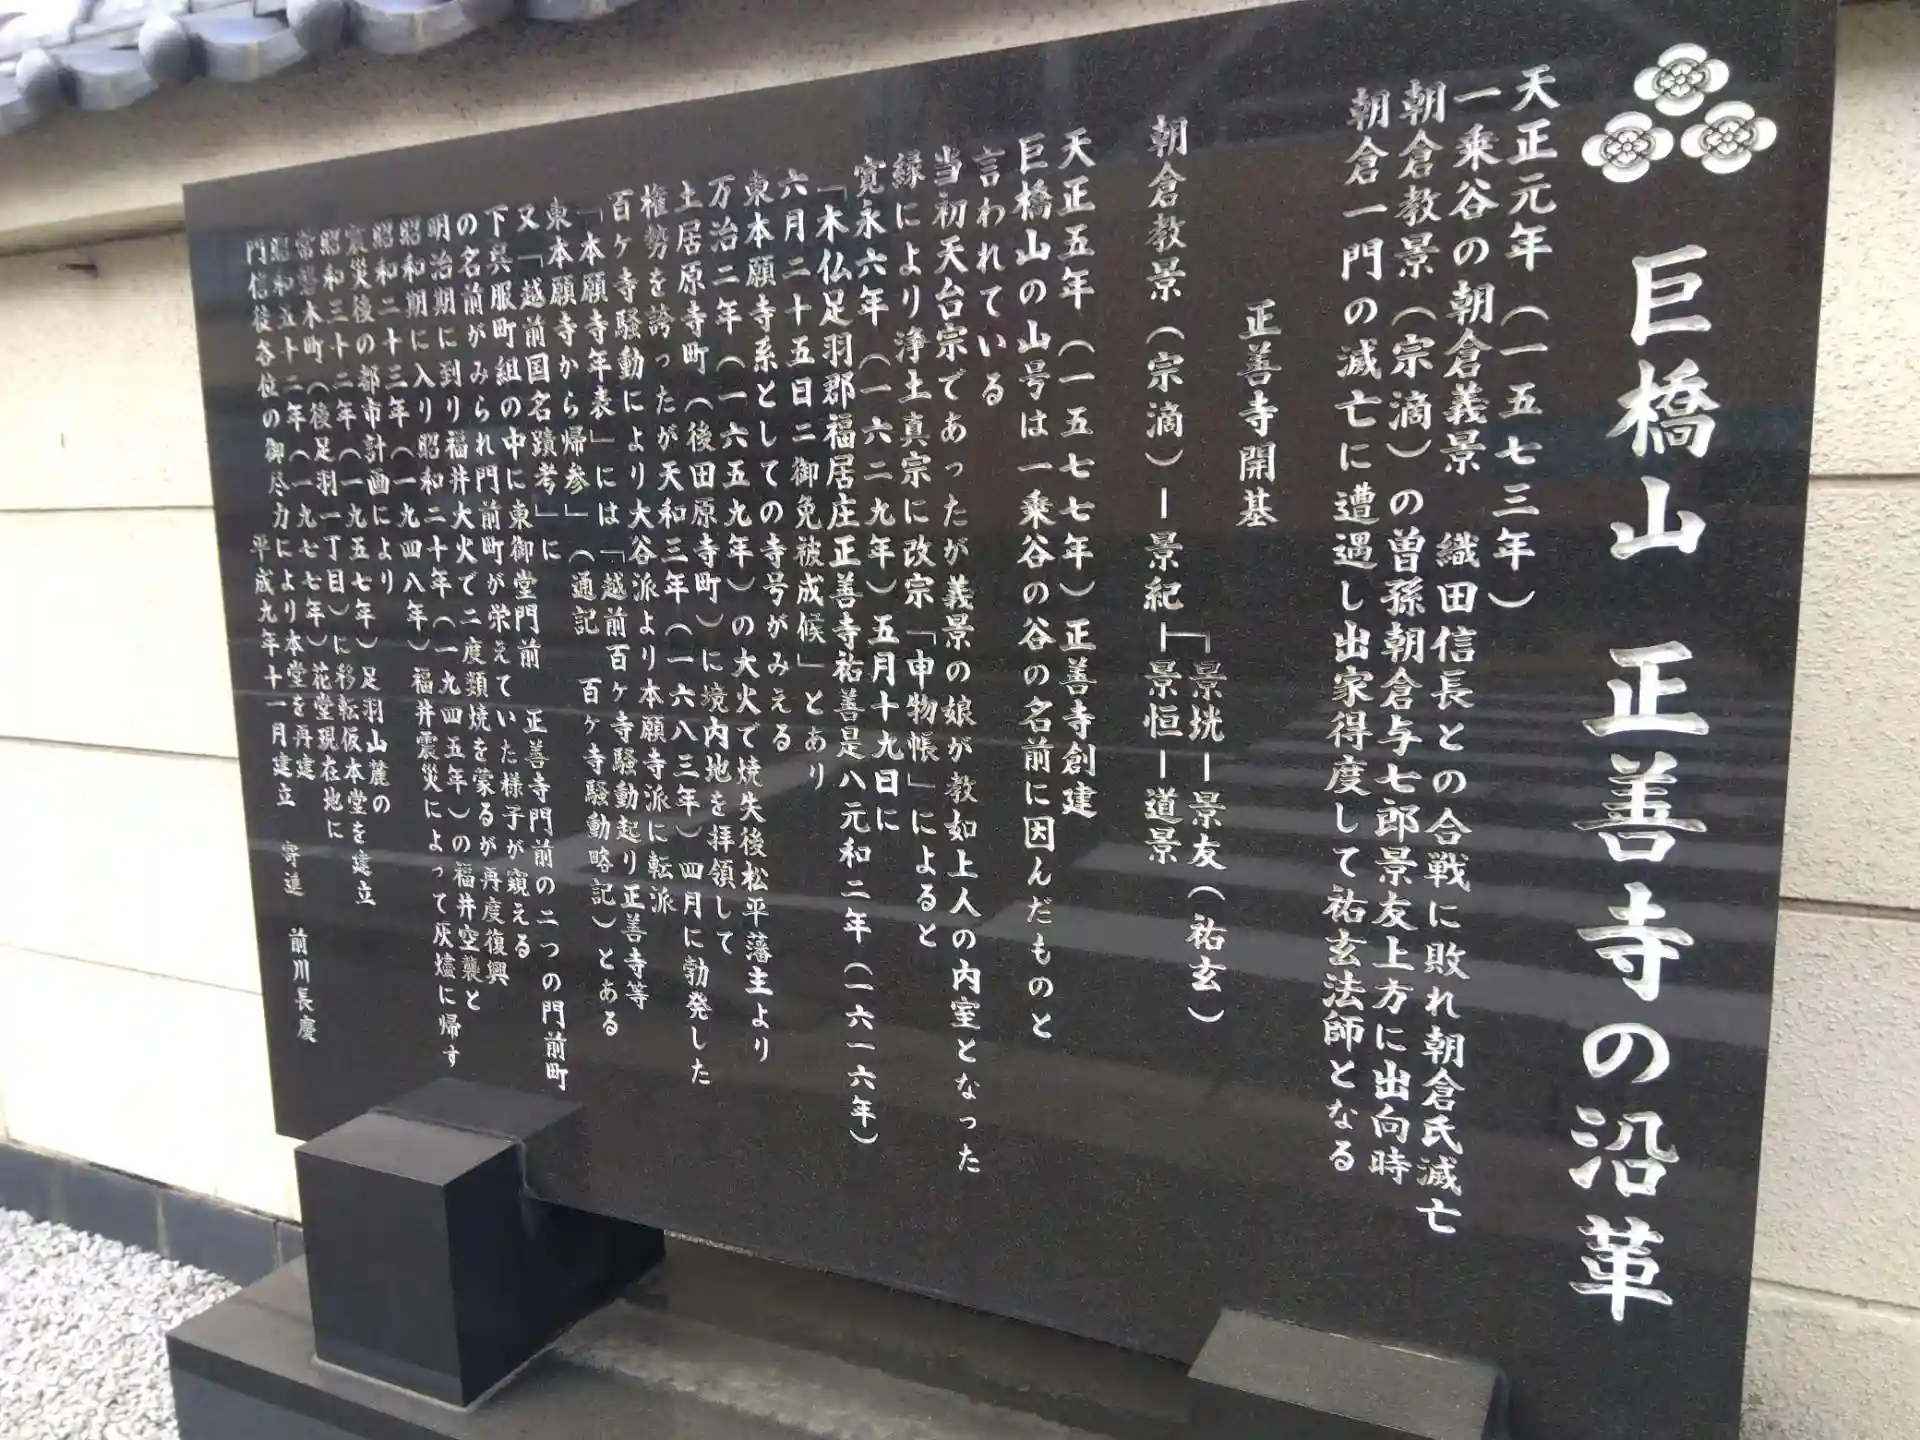 巨橋山 正善寺の沿革
天正元年(一五七三年)
一乗谷の朝倉義景 織田信長との合戦に敗れ朝倉氏滅亡
朝倉教景(宗滴)の曽孫朝倉与七郎景友上方に出向時
朝倉一門の滅亡に遭遇し出家得度して祐玄法師となる
正善寺開基
┌景垙ー景友(祐玄)
朝倉教景(宗滴)ー景紀┼景恒ー道景
天正五年(一五七七年)正善寺創建
巨橋山の山号は一乗谷の谷の名前に因んだものと
言われている
当初天台宗であったが義景の娘が教如上人の内室となった
縁により浄土真宗に改宗「申物帳」によると
寛永六年(一六二九年)五月十九日に
「木仏足羽郡福居庄正善寺祐善是八元和二年(一六一六年)
六月二十五日二御免被成候」とあり
東本願寺系としての寺号がみえる
万治二年(一六五九年)の大火で焼失後松平藩主より
土居原寺町(後田原寺町)に境内地を拝領して
権勢を誇ったが天和三年(一六八三年)四月に勃発した
百ヶ寺騒動により大谷派より本願寺派に転派
「本願寺年表」には「越前百ヶ寺騒動起り正善寺等
東本願寺から帰参」(通記 百ヶ寺騒動略記)とある
又「越前国名蹟考」に
下呉服町組の中に東御堂門前 正善寺門前の二つの門前町
の名前がみられ門前町が栄えていた様子が窺える
明治期に到り福井大火で二度類焼を蒙るが再度復興
昭和期に入り昭和二十年(一九四五年)の福井空襲と
昭和二十三年(一九四八年)福井震災によって灰燼に帰す
震災後の都市計画により足羽山麓の
昭和三十二年(一九五七年)
常盤木町(後足羽一丁目)に移転仮本堂を建立
昭和五十二年(一九七七年)花堂現在地に
門信徒各位の御尽力により本堂を再建
平成九年十一月建立 寄進 前川長慶